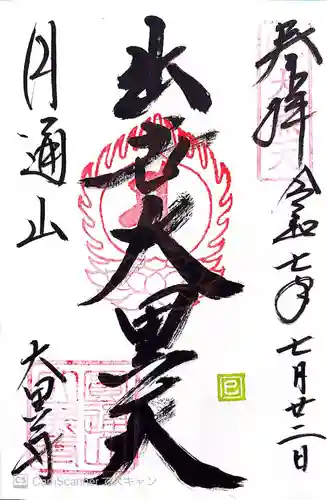 奉拝
令和七年七月廿二日
出世大黒天
円通山
大黒寺
巳
CS CamScannerでスキャン